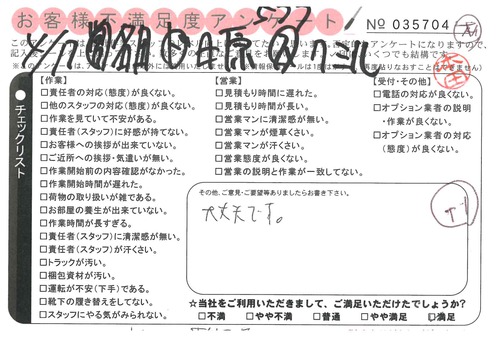 お客様不満足度アンケート
№ 035704
チェックリスト
【作業】
□責任者の対応(態度)が良くない。
□他のスタッフの対応(態度)が良くない。
□作業を見ていて不安がある。
□責任者(スタッフ)に好感が持てない。
□お客様への挨拶が出来ていない。
□ご近所への挨拶・気遣いが無い。
□作業開始前の内容確認がなかった。
□作業開始時間が遅れた。
□荷物の取り扱いが雑である。
□お部屋の養生が出来ていない。
□作業時間が長すぎる。
□責任者(スタッフ)に清潔感が無い。
□責任者(スタッフ)が汗くさい。
□トラックが汚い。
□梱包資材が汚い。
□運転が不安(下手)である。
□靴下の履き替えをしてない。
□スタッフにやる気がみられない。
【営業】
□見積もり時間に遅れた。
□見積もり時間が長い。
□営業マンに清潔感が無い。
□営業マンが煙草くさい。
□営業マンが汗くさい。
□営業態度が良くない。
□営業の説明と作業が一致してない。
【受付・その他】
□電話の対応が良くない。
□オプション業者の説明
・作業が良くない。
□オプション業者の対応
(態度)が良くない。
その他、ご意見・ご要望等ありましたらお書き下さい。
大丈夫です。
☆当社をご利用いただきまして、ご満足いただけたでしょうか?
□不満 □やや不満 □普通 □やや満足 □満足